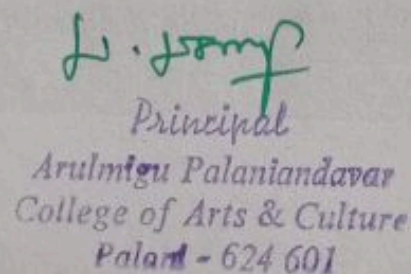 Principal
Arulmigu Palaniandavar
College of Arts & Culture
Palani - 624 601